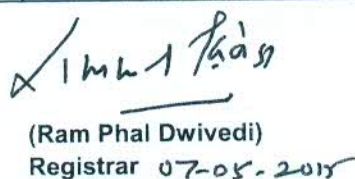 (Ram Phal Dwivedi)
Registrar 07-05-2015